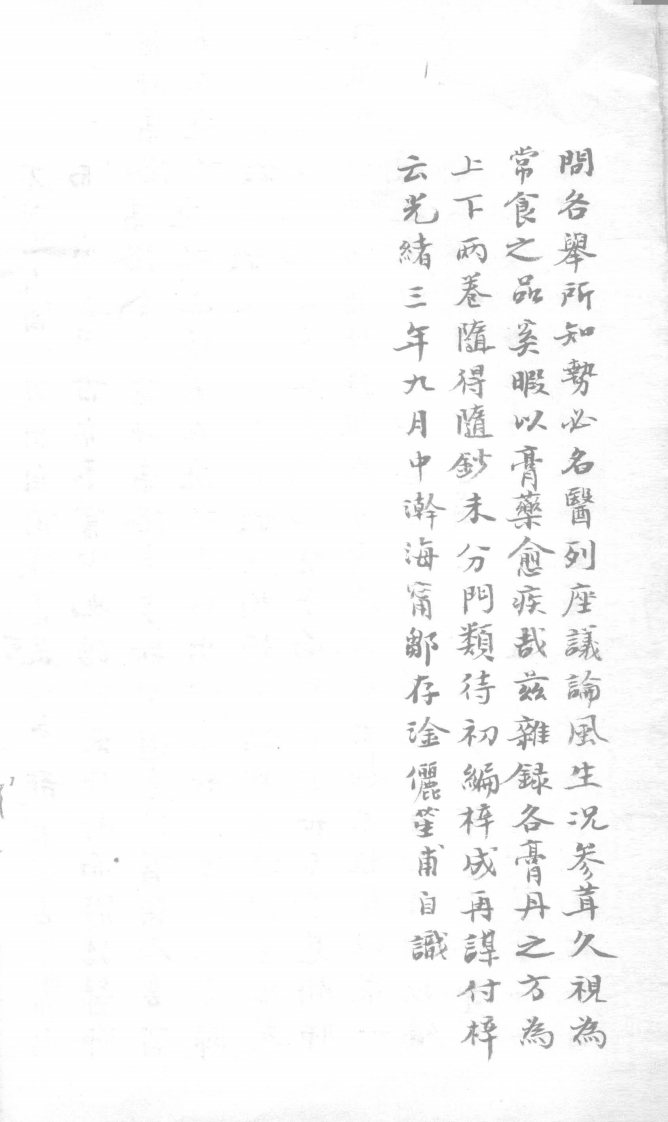 問各舉所知勢必名醫列座議論風生况參茸久視為
常食之品奚暇以膏藥愈疾哉兹雜録各膏丹之方為
上下兩卷隨得隨鈔未分門類待初編梓成再謀付梓
云光緒三年九月中澣海甯鄒存淦儷笙甫自識